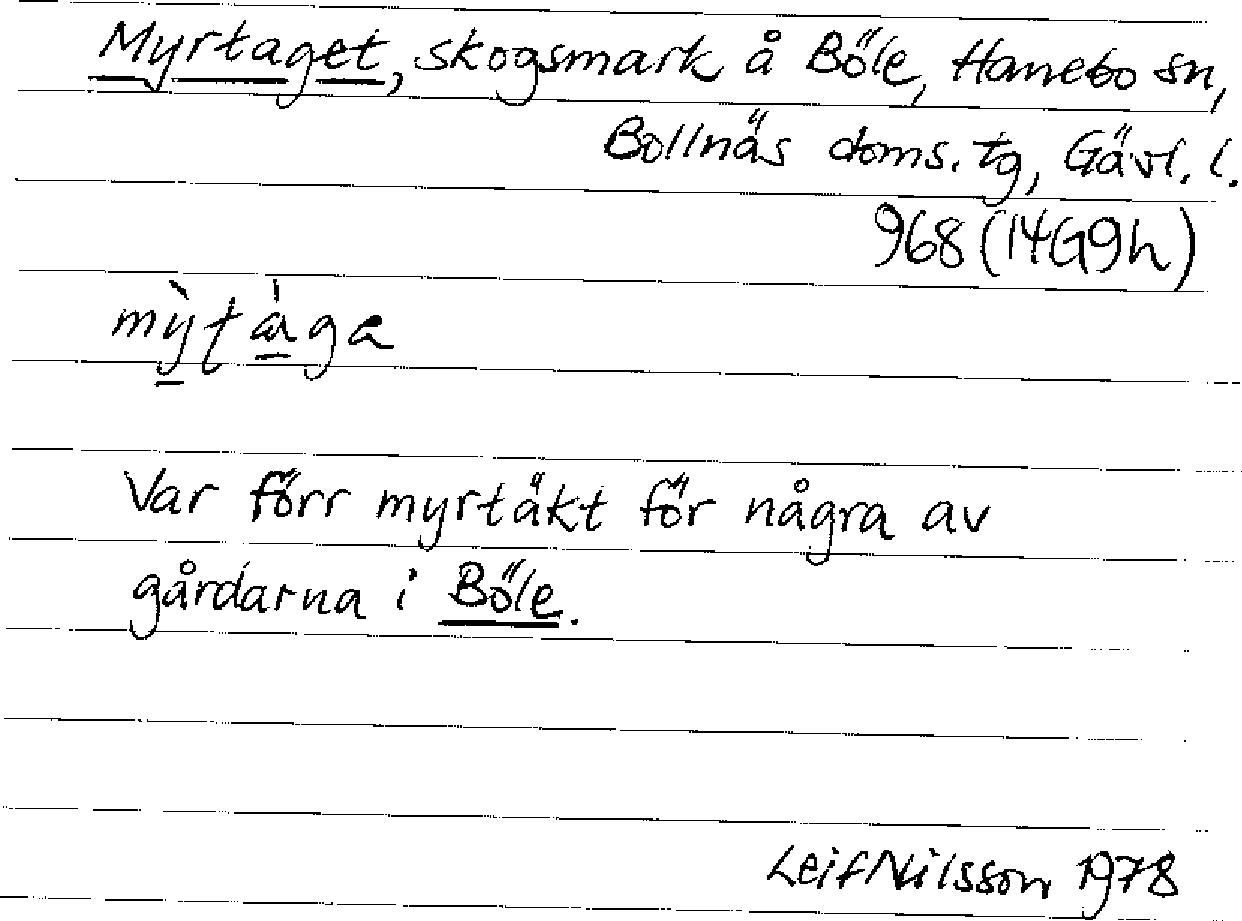 Myrtaget, skogsmark å Böle, Hanebo sn,
Bollnäs doms. tg, Gävl. l.
968 (14G9h)
mỳtàga
Var förr myrtäkt för några av
gårdarna i Böle.
Leif Nilsson 1978